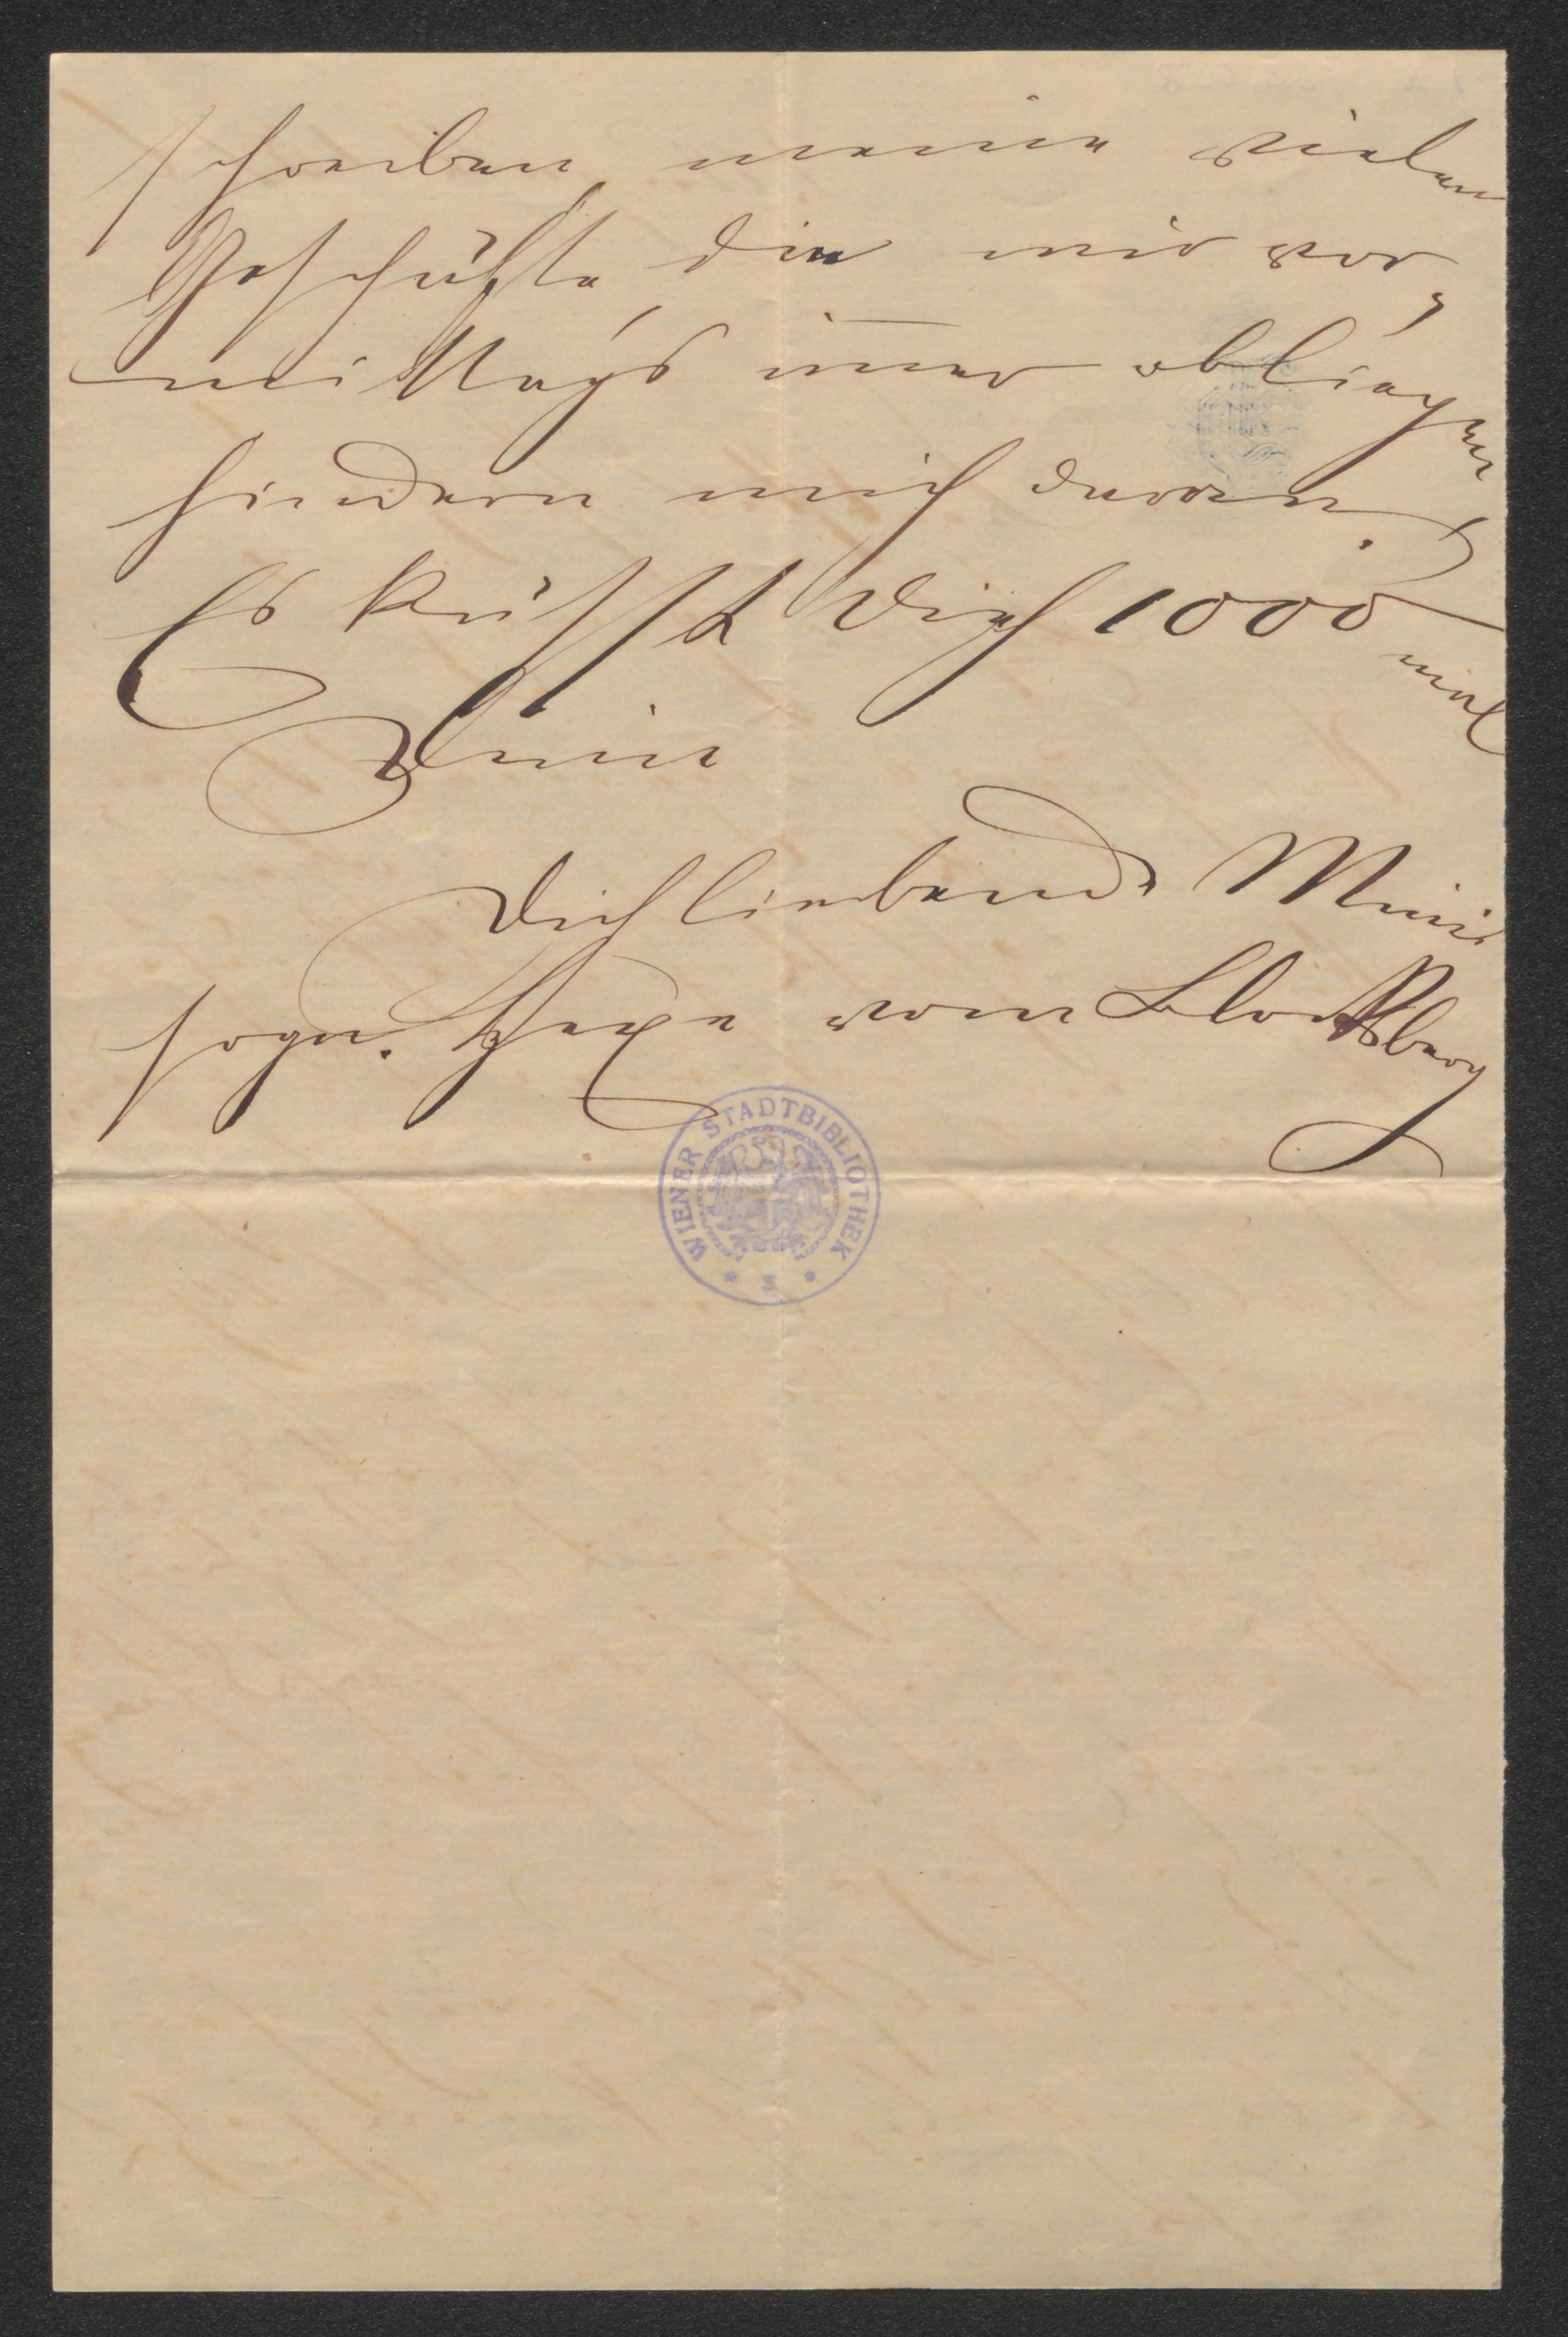 schreiben, meine vielen
Geschäfte, die mir vor,
mittags im̅er obliegen
hindern mich daran.
Es küsst Dich 1000
mal
Deine
Dich liebende Mini
sogn. Hexe vom Blocksberg
WIENER STADTBIBLIOTHEK